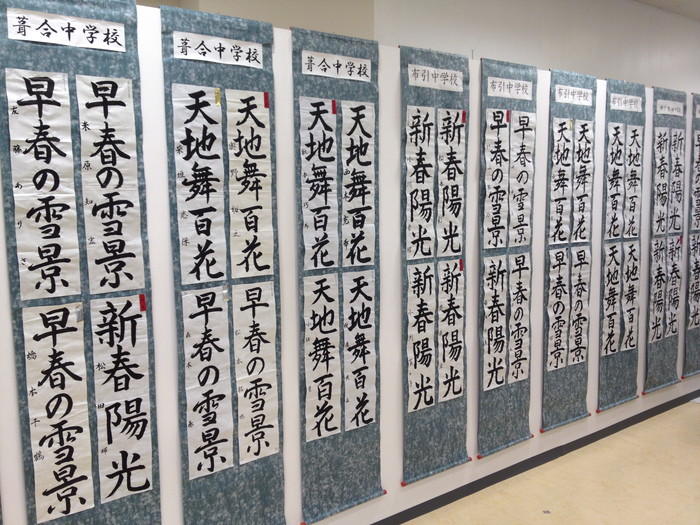 葺合中学校
早春の雪景
早春の雪景
新春陽光
早春の雪景
橋本千鶴
葺合中学校
天地舞百花
天地舞百花
早春の雪景
早春の雪景
葺合中学校
天地舞百花
天地舞百花
天地舞百花
天地舞百花
布引中学校
新春陽光
新春陽光
新春陽光
新春陽光
布引中学校
早春の雪景
早春の雪景
早春の雪景
新春陽光
布引中学校
天地舞百花
天地舞百花
早春の雪景
早春の雪景
布引中学校
天地舞百花
天地舞百花
天地舞百花
天地舞百花
新春陽光
新春陽光
新春陽光
新春陽光